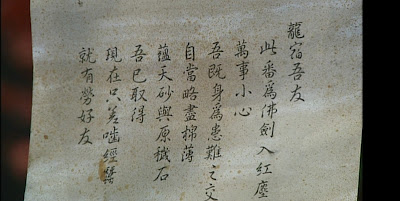 龍宿吾友
此番為佛劍入紅塵
萬事小心
吾既身為患難之交
自當略盡棉薄
蘊天砂與原穢石
吾已取得
現在只差噬經蠹
就有勞好友